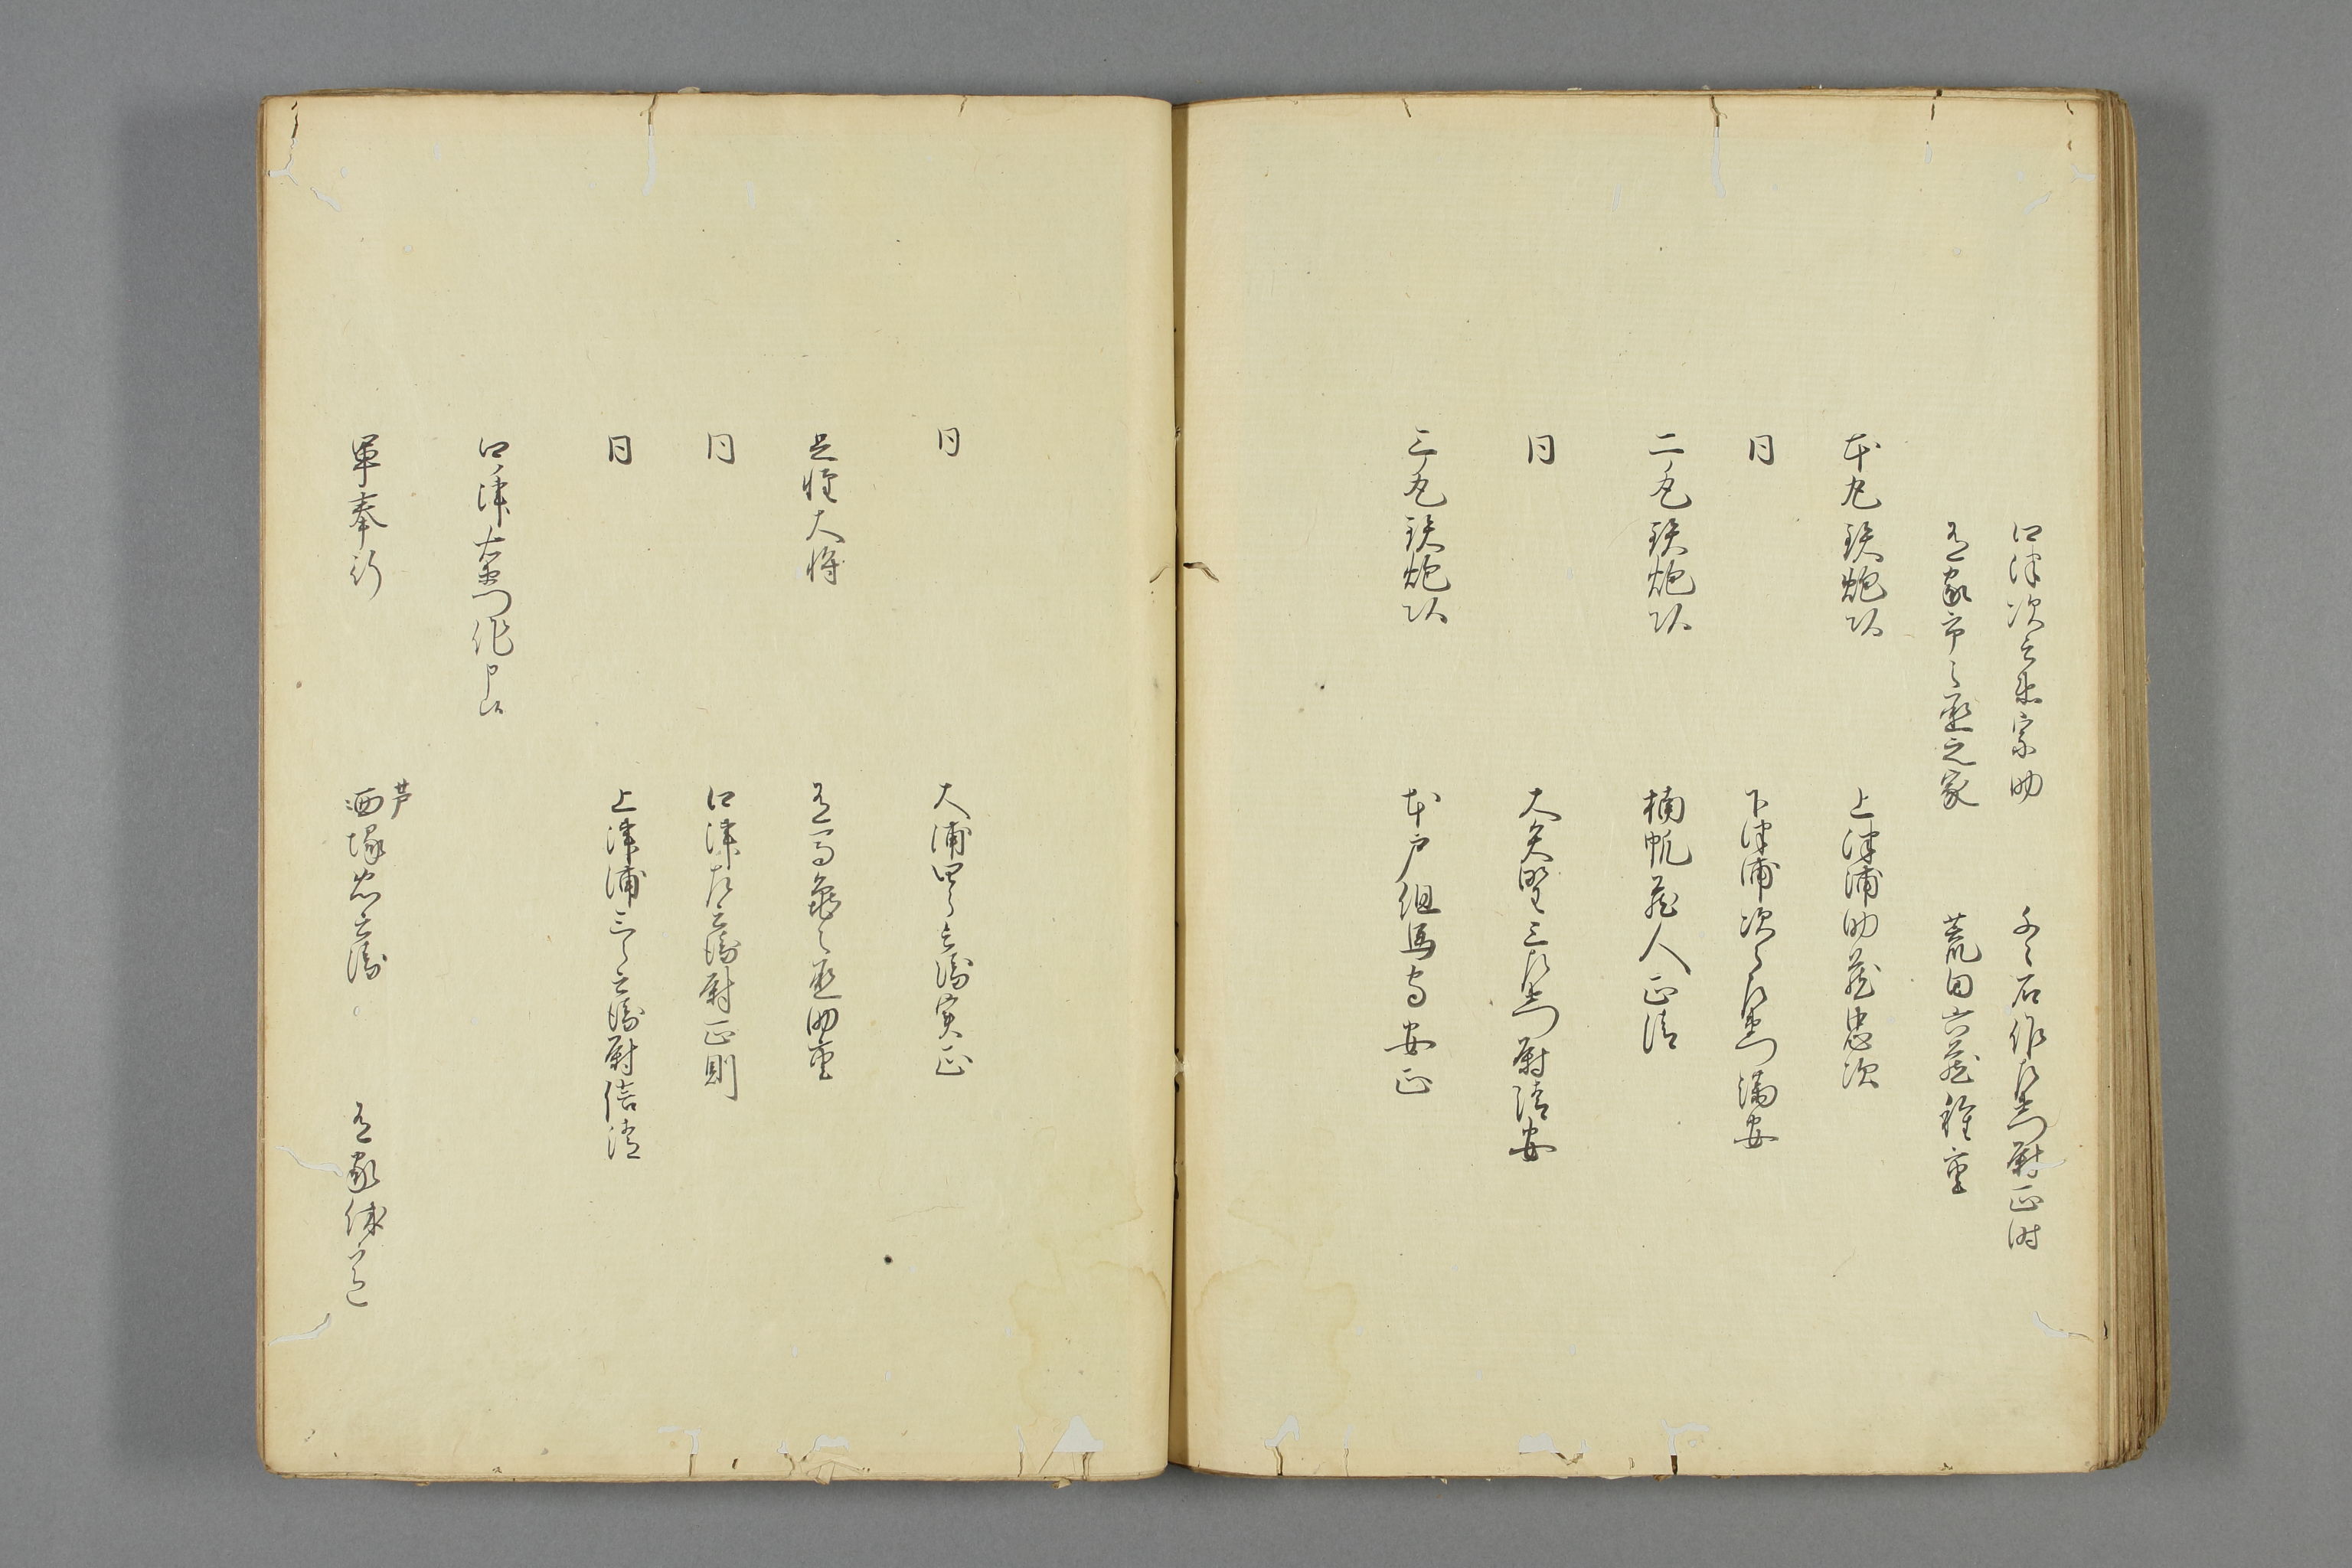 口津次兵衛宗助　千々石作左衛門尉正時
有家市之丞之家　荒田六蔵種重
本丸鉄炮頭　上津浦助蔵忠次
同　下津浦次郎左衛門満安
二丸鉄炮頭　楠帆蔵人正清
同　大矢野三左衛門尉清安
三丸鉄炮頭　本戸但馬守安正
同　大浦四郎兵衛実正
足軽大将　有馬亀之丞助重
同　口津左兵衛尉正則
同　上津浦三郎兵衛尉信清
口ノ津右衛門作
軍奉行　芦塚忠兵衛　有家